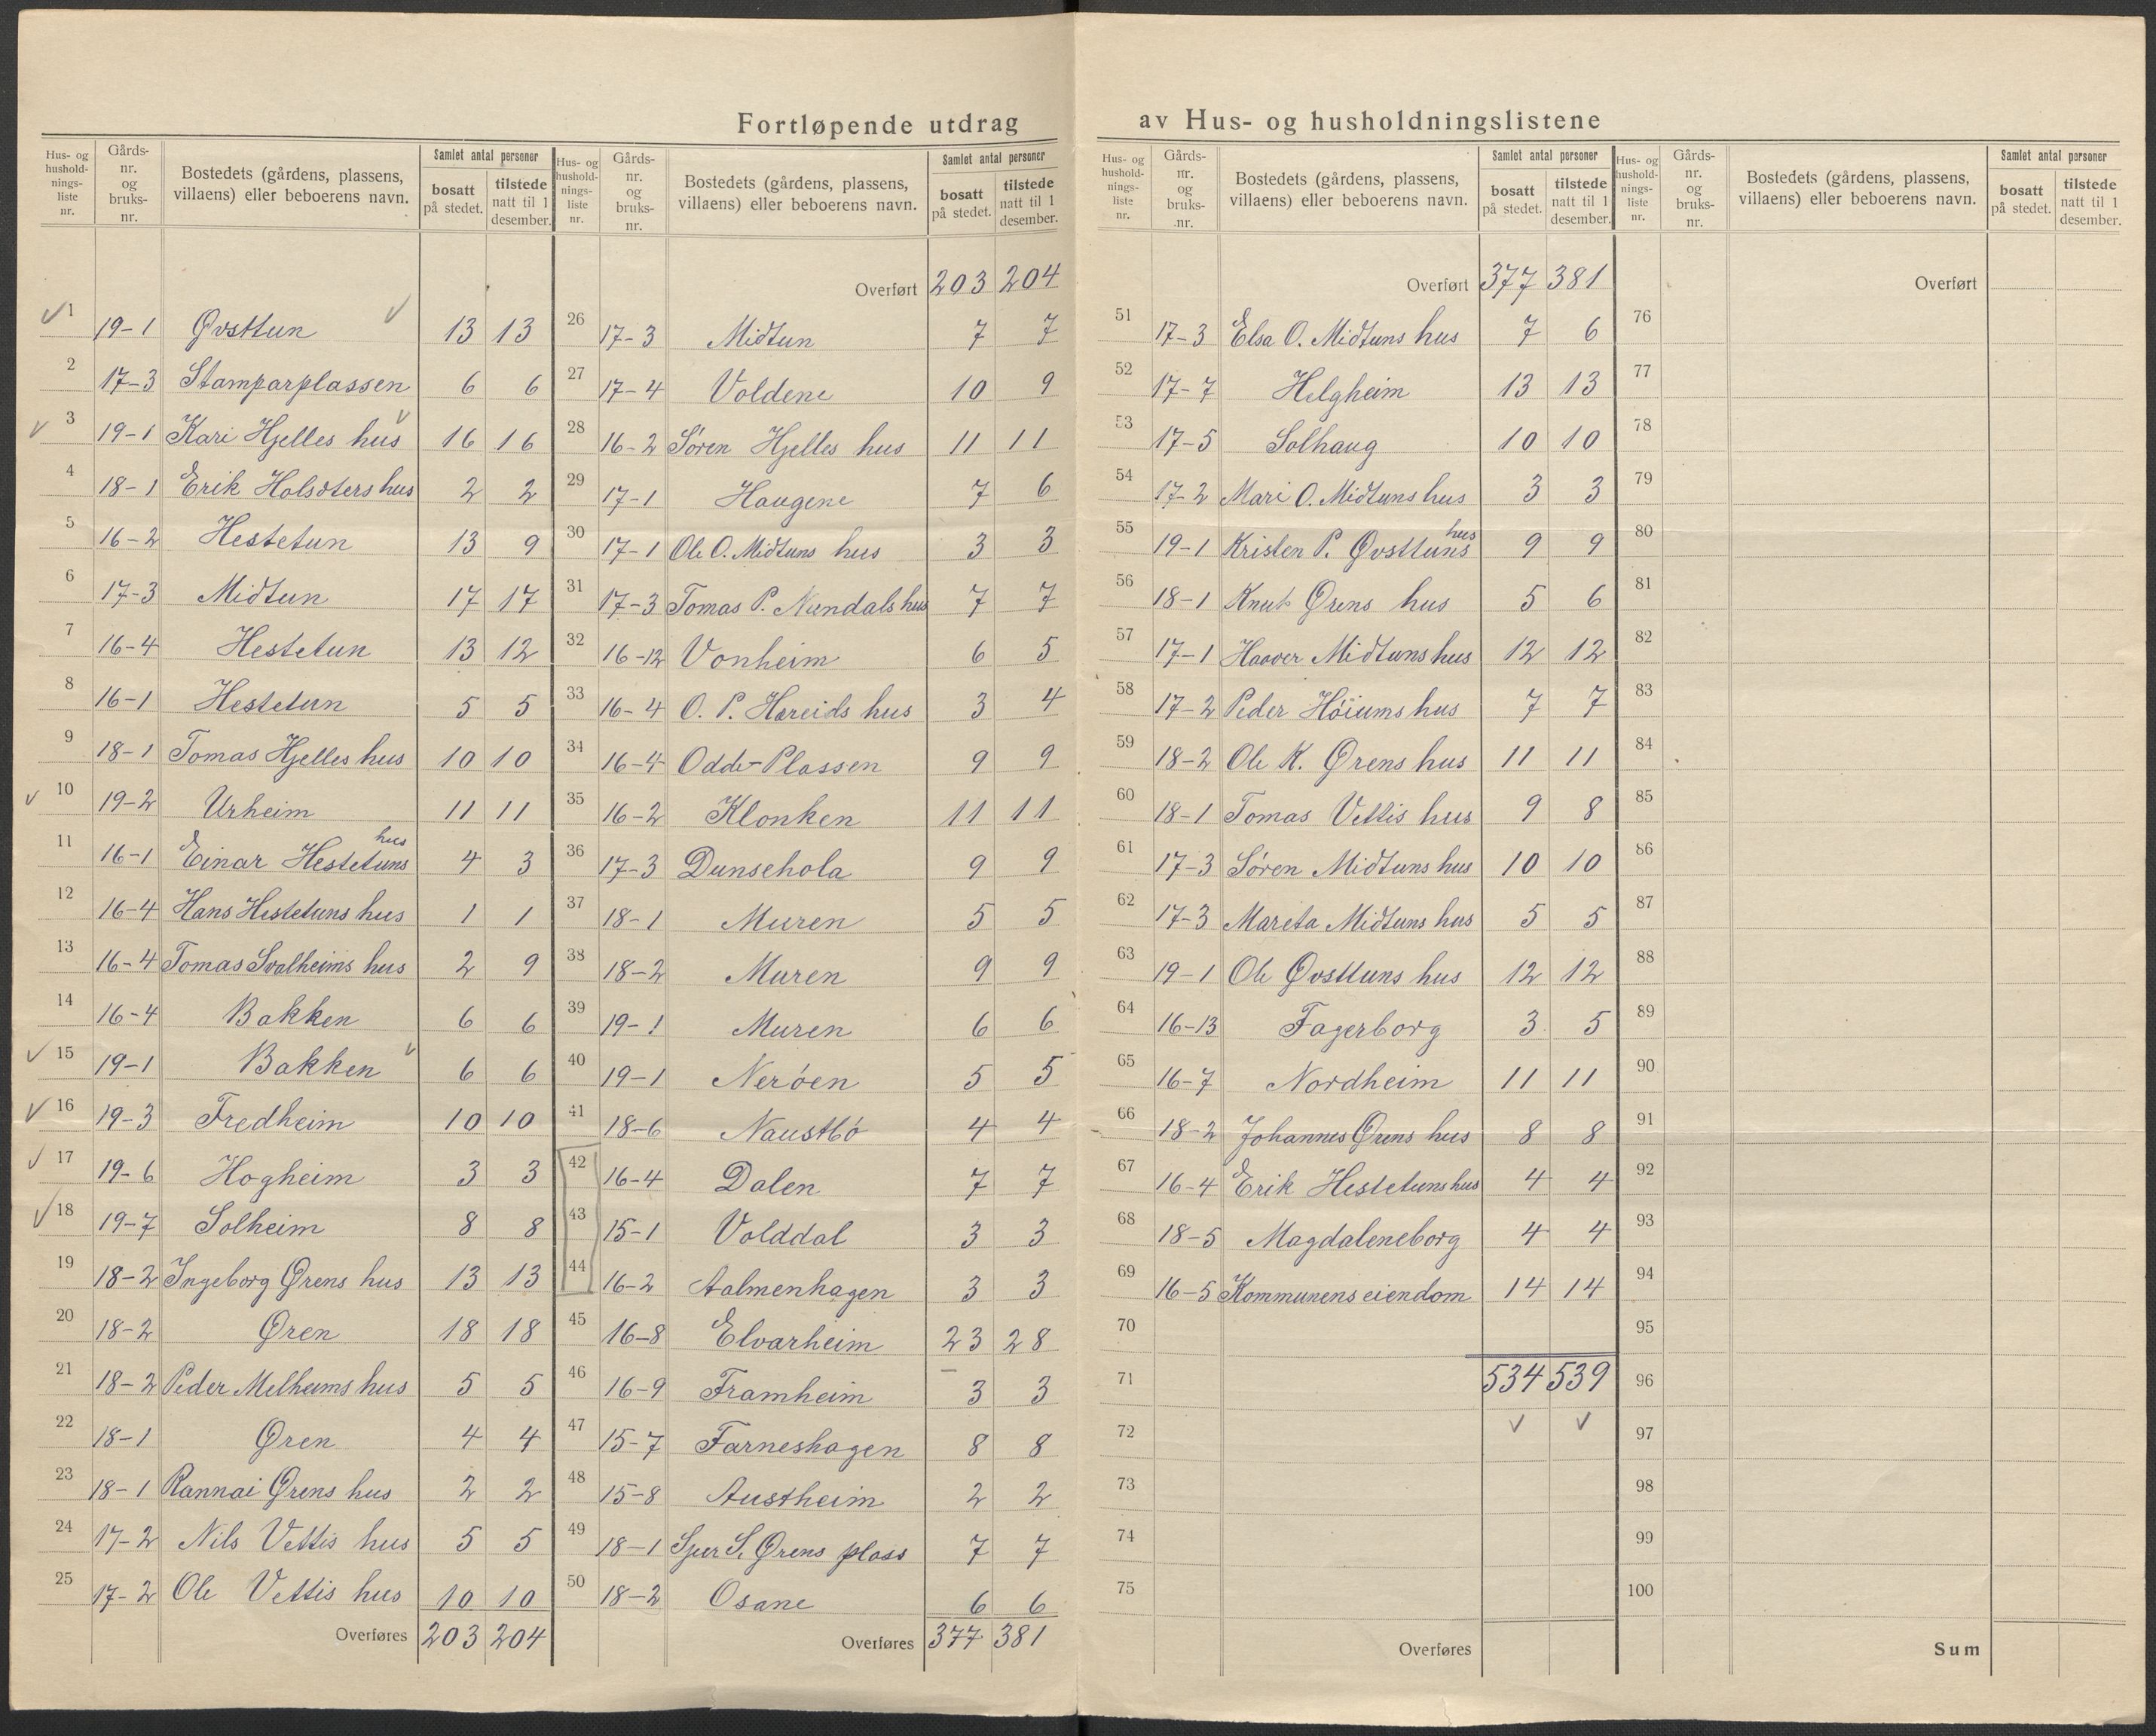 Fortløpende utdrag av Hus- og husholdningslistene
Hus- og hushold-nings-liste nr. Gårds-nr. og bruks-nr. Bostedets (gårdens, plassens, villaens) eller beboerens navn. Samlet antal personer bosatt på stedet. tilstede natt til 1 desember.
1 19-1 Øvsttun 13 13
2 17-3 Stamparplassen 6 6
3 19-1 Kari Hjelles hus 16 16
4 18-1 Erik Holsdters hus 2 2
5 16-2 Hestetun 13 9
6 17-3 Midtun 17 17
7 16-4 Hestetun 13 12
8 16-1 Hestetun 5 5
9 18-1 Tomas Hjelles hus 10 10
10 19-2 Urheim 11 11
11 16-1 Einar Hestetuns hus 4 3
12 16-4 Hans Hestetuns hus 1 1
13 16-4 Tomas Svalheims hus 2 9
14 16-4 Bakken 6 6
15 19-1 Bakken 6 6
16 19-3 Fredheim 10 10
17 19-6 Hogheim 3 3
18 19-7 Solheim 8 8
19 18-2 Ingeborg Ørens hus 13 13
20 18-2 Øren 18 18
21 18-2 Peder Melheims hus 5 5
22 18-1 Øren 4 4
23 18-1 Rannai Ørens hus 2 2
24 17-2 Nils Vettis hus 5 5
25 17-2 Ole Vettis hus 10 10
Overføres 203 204
Hus- og hushold-nings-liste nr. Gårds-nr. og bruks-nr. Bostedets (gårdens, plassens, villaens) eller beboerens navn. Samlet antal personer bosatt på stedet. tilstede natt til 1 desember.
Overført 203 204
26 17-3 Midtun 7 7
27 17-4 Voldene 10 9
28 16-2 Søren Hjelles hus 11 11
29 17-1 Haugene 7 6
30 17-1 Ole O. Midtuns hus 3 3
31 17-3 Tomas P. Nundals hus 7 7
32 16-12 Vonheim 6 5
33 16-4 O. P. Hæreids hus 3 4
34 16-4 Odde-Plassen 9 9
35 16-2 Klonken 11 11
36 17-3 Dunsehola 9 9
37 18-1 Muren 5 5
38 18-2 Muren 9 9
39 19-1 Muren 6 6
40 19-1 Nerøen 5 5
41 18-6 Naustbø 4 4
42 16-4 Dalen 7 7
43 15-1 Volddal 3 3
44 16-2 Aalmenhagen 3 3
45 16-8 Elvarheim 23 28
46 16-9 Framheim 3 3
47 15-7 Farneshagen 8 8
48 15-8 Austheim 2 2
49 18-1 Sjur S. Ørens plass 7 7
50 18-2 Osane 6 6
Overføres 377 381
Hus- og hushold-nings-liste nr. Gårds-nr. og bruks-nr. Bostedets (gårdens, plassens, villaens) eller beboerens navn. Samlet antal personer bosatt på stedet. tilstede natt til 1 desember.
Overført 377 381
51 17-3 Elsa O. Midtuns hus 7 6
52 17-7 Helgheim 13 13
53 17-5 Solhaug 10 10
54 17-2 Mari O. Midtuns hus 3 3
55 19-1 Kristen P. Øvsttuns hus 9 9
56 18-1 Knut Ørens hus 5 6
57 17-1 Haaver Midtuns hus 12 12
58 17-2 Peder Høiums hus 7 7
59 18-2 Ole K. Ørens hus 11 11
60 18-1 Tomas Vettis hus 9 8
61 17-3 Søren Midtuns hus 10 10
62 17-3 Mareta Midtuns hus 5 5
63 19-1 Ole Øvsttuns hus 12 12
64 16-13 Fagerborg 3 5
65 16-7 Nordheim 11 11
66 18-2 Johannes Ørens hus 8 8
67 16-4 Erik Hestetuns hus 4 4
68 18-5 Magdaleneborg 4 4
69 16-5 Kommunens eiendom 14 14
70
71 534 539
72
73
74
75
Overføres
Hus- og hushold-nings-liste nr. Gårds-nr. og bruks-nr. Bostedets (gårdens, plassens, villaens) eller beboerens navn. Samlet antal personer bosatt på stedet. tilstede natt til 1 desember.
Overført
76
77
78
79
80
81
82
83
84
85
86
87
88
89
90
91
92
93
94
95
96
97
98
99
100
Sum